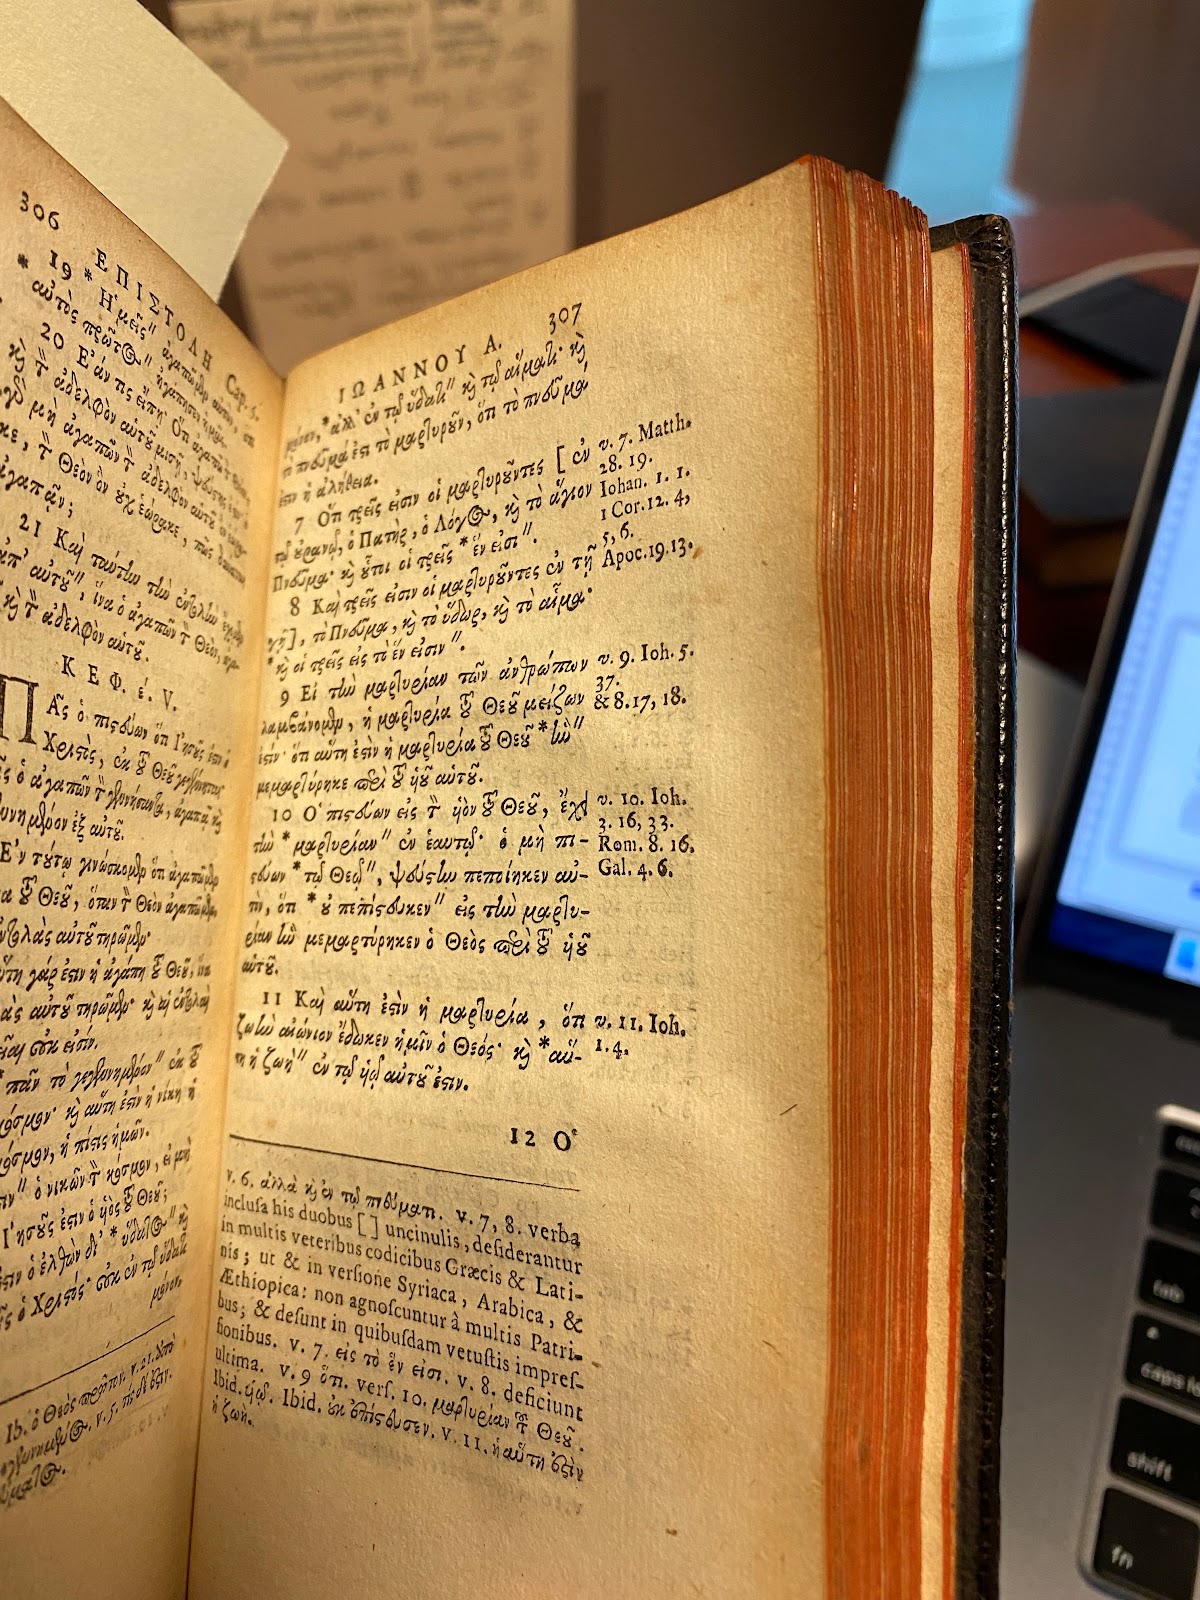 306
ΕΠΙΣΤΟΛΗ Cap. 5.
19 * Ἡμεῖς" ἀγαπῶμεν αὐτὸν, ὅτι
* αὐτὸς πρῶτος" ἠγάπησεν ἡμᾶς.
20 Ἐάν τις εἴπῃ· Ὅτι ἀγαπῶ
καὶ τὸν ἀδελφὸν αὐτοῦ μισῇ, ψεύστης ἐστίν·
μὴ ἀγαπῶν τὸν ἀδελφὸν αὐτοῦ ὃν
τὸν Θεὸν ὃν οὐχ ἑώρακε, πῶς δύναται
ἀγαπᾷν;
21 Καὶ ταύτην τὴν ἐντολὴν ἔχομεν
ἀπ' αὐτοῦ", ἵνα ὁ ἀγαπῶν τὸν Θεὸν,
καὶ τὸν ἀδελφὸν αὐτοῦ.
ΚΕΦ. έ. V.
ΠΑς ὁ πιστεύων ὅτι Ἰησοῦς ἐστιν ὁ
Χριστὸς, ἐκ τοῦ Θεοῦ γεγέννηται·
ὁ ἀγαπῶν τὸν γεννήσαντα, ἀγαπᾷ καὶ
ἐξ αὐτοῦ.
Ἐν τούτῳ γινώσκομεν ὅτι ἀγαπῶμεν
τοῦ Θεοῦ, ὅταν τὸν Θεὸν ἀγαπῶμεν,
αὐτοῦ τηρῶμεν·
γάρ ἐστιν ἡ ἀγάπη τοῦ Θεοῦ, ἵνα
αὐτοῦ τηρῶμεν· καὶ αἱ ἐντολαὶ
οὐκ εἰσίν.
* πᾶν τὸ γεγεννημένον" ἐκ τοῦ
κόσμον· καὶ αὕτη ἐστὶν ἡ νίκη ἡ
κόσμον, ἡ πίστις ἡμῶν.
" ὁ νικῶν τὸν κόσμον, εἰ μὴ
Ἰησοῦς ἐστιν ὁ υἱὸς τοῦ Θεοῦ;
ὁ ἐλθὼν δι' * ὕδατος" καὶ
ὁ Χριστός· οὐκ ἐν τῷ ὕδατι
μόνον,
Ib. ὁ Θεὸς πρῶτον. v. 21. ἀπὸ
v. 5. τίς δέ ἐστιν.
ΙΩΑΝΝΟΥ Α. 307
μόνον, * ἀλλ' ἐν τῷ ὕδατι" καὶ τῷ αἵματι· καὶ
τὸ πνεῦμά ἐστι τὸ μαρτυροῦν, ὅτι τὸ πνεῦμά
ἐστιν ἡ ἀλήθεια.
7 Ὅτι τρεῖς εἰσιν οἱ μαρτυροῦντες [ ἐν
τῷ οὐρανῷ, ὁ Πατὴρ, ὁ Λόγος, καὶ τὸ ἅγιον
Πνεῦμα· καὶ οὗτοι οἱ τρεῖς * ἕν εἰσι".
8 Καὶ τρεῖς εἰσιν οἱ μαρτυροῦντες ἐν τῇ
γῇ], τὸ Πνεῦμα, καὶ τὸ ὕδωρ, καὶ τὸ αἷμα·
* καὶ οἱ τρεῖς εἰς τὸ ἕν εἰσιν".
v. 7. Matth.
28. 19.
Iohan. 1. 1.
1 Cor. 12. 4,
5, 6.
Apoc. 19. 13.
9 Εἰ τὴν μαρτυρίαν τῶν ἀνθρώπων
λαμβάνομεν, ἡ μαρτυρία τοῦ Θεοῦ μείζων
ἐστίν· ὅτι αὕτη ἐστὶν ἡ μαρτυρία τοῦ Θεοῦ * ἣν"
μεμαρτύρηκε περὶ τοῦ υἱοῦ αὐτοῦ.
v. 9. Ioh. 5.
37.
& 8. 17, 18.
10 Ὁ πιστεύων εἰς τὸν υἱὸν τοῦ Θεοῦ, ἔχει
τὴν * μαρτυρίαν" ἐν ἑαυτῷ· ὁ μὴ πι-
στεύων * τῷ Θεῷ", ψεύστην πεποίηκεν αὐ-
τὸν, ὅτι * οὐ πεπίστευκεν" εἰς τὴν μαρτυ-
ρίαν ἣν μεμαρτύρηκεν ὁ Θεὸς περὶ τοῦ υἱοῦ
αὐτοῦ.
v. 10. Ioh.
3. 16, 33.
Rom. 8. 16.
Gal. 4. 6.
11 Καὶ αὕτη ἐστὶν ἡ μαρτυρία, ὅτι
ζωὴν αἰώνιον ἔδωκεν ἡμῖν ὁ Θεός· καὶ * αὕ-
τη ἡ ζωὴ" ἐν τῷ υἱῷ αὐτοῦ ἐστιν.
v. 11. Ioh.
1. 4.
12 Ὁ
v. 6. ἀλλὰ καὶ ἐν τῷ πνεύματι. v. 7, 8. verba
inclusa his duobus [ ] uncinulis, desiderantur
in multis veteribus codicibus Græcis & Lati-
nis; ut & in versione Syriaca, Arabica, &
Æthiopica: non agnoscuntur à multis Patri-
bus; & desunt in quibusdam vetustis impres-
sionibus. v. 7. εἰς τὸ ἕν εἰσι. v. 8. deficiunt
ultima. v. 9 ὅτι. vers. 10. μαρτυρίαν τοῦ Θεοῦ.
Ibid. υἱῷ. Ibid. οὐκ ἐπίστευσεν. v. 11. ἡ αὕτη ἐστὶν
ἡ ζωή.
tab
caps lo
shift
fn